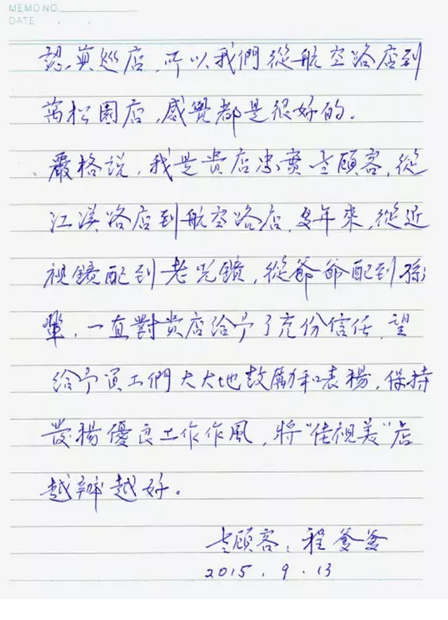 MEMO NO.
DATE
認真巡店,所以我們從航空路店到
萬松園店,感覺都是很好的。
嚴格說,我是貴店忠實老顧客,從
江漢路店到航空路店,多年來,從近
視鏡配到老光鏡,從爺爺配到孫
輩,一直對貴店給予了充份信任,望
給予員工們大大地鼓勵和表揚,保持
發揚優良工作作風,將"佳視美"店
越辦越好。
老顧客:程爹爹
2015.9.13